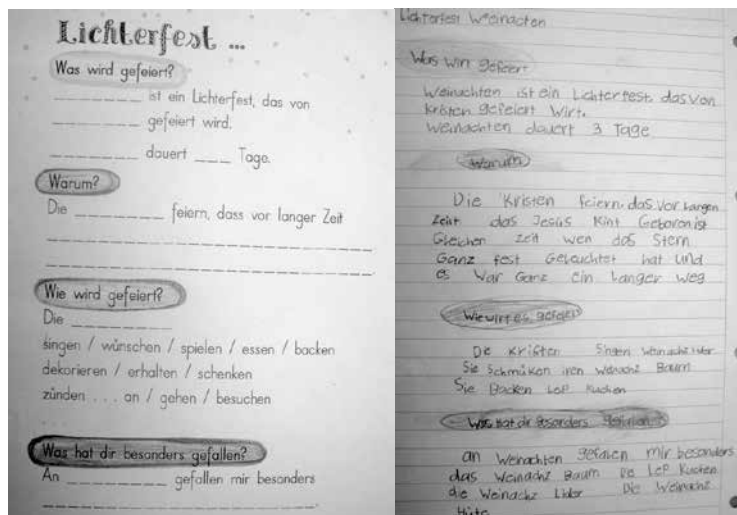 Lichterfest ...
Was wird gefeiert?
_________ ist ein Lichterfest, das von
_________ gefeiert wird.
_________ dauert ____ Tage.
Warum?
Die _________ feiern, dass vor langer Zeit
Wie wird gefeiert?
Die _________
singen / wünschen / spielen / essen / backen
dekorieren / erhalten / schenken
zünden ... an / gehen / besuchen
Was hat dir besonders gefallen?
An _________ gefallen mir besonders
Lichterfest Weinacten
Was wirt gefeert
Weinachten ist ein Lichterfest. das von
kristen gefeiert wirt.
Weinachten dauert 3 Tage
Warum
Die Kristen feiern. das vor langen
Zeit das Jesus Kint Geboren ist
Gleichen zeit wen das Stern
Ganz fest Geleuchtet hat und
es war Ganz ein langer weg
Wie wirt es gefeiert
De kristen Singen
Sie Schmüken iren Weinachz Baum
Sie Backen LeP Kuchen
Was hat dir besonders gefallen
an Weinachten gefalen mir besonders
das Weinachz Baum De LeP Kuchen
die Weinachz Lider Die Weinachz
Hüte